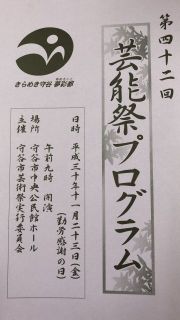 第四十二回
芸能祭プログラム
きらめき守谷 夢彩都
日時 平成三十年十一月二十三日(金)
(勤労感謝の日)
午前九時 開演
場所 守谷市中央公民館ホール
主催 守谷市芸術祭実行委員会